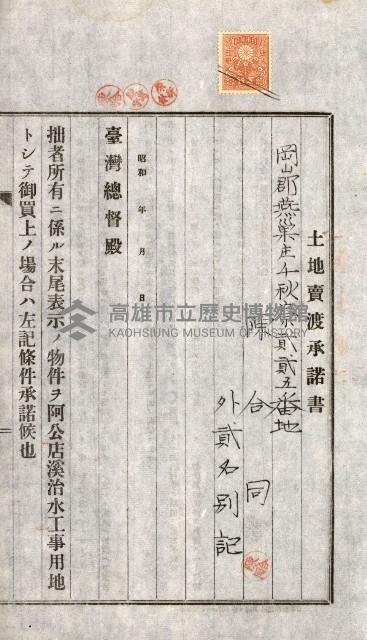 土地賣渡承諾書
岡山郡燕巢庄千秋寮貳貳五番地
陳合同
外貳名別記
昭和　年　月　日
臺灣總督殿
拙者所有ニ係ル末尾表示ノ物件ヲ阿公店溪治水工事用地
トシテ御買上ノ場合ハ左記條件承諾候也
高雄市立歷史博物館
KAOHSIUNG MUSEUM OF HISTORY